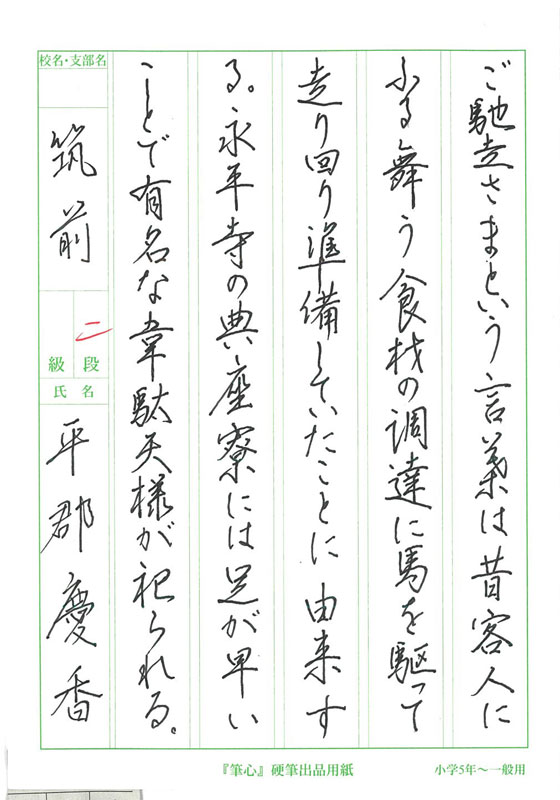 ご馳走さまという言葉は昔客人に
ふる舞う食材の調達に馬を駆って
走り回り準備していたことに由来す
る。永平寺の典座寮には足が早い
ことで有名な韋駄天様が祀られる。
校名・支部名
筑前
二
級 段
氏名
平郡慶香
『筆心』硬筆出品用紙
小学5年～一般用